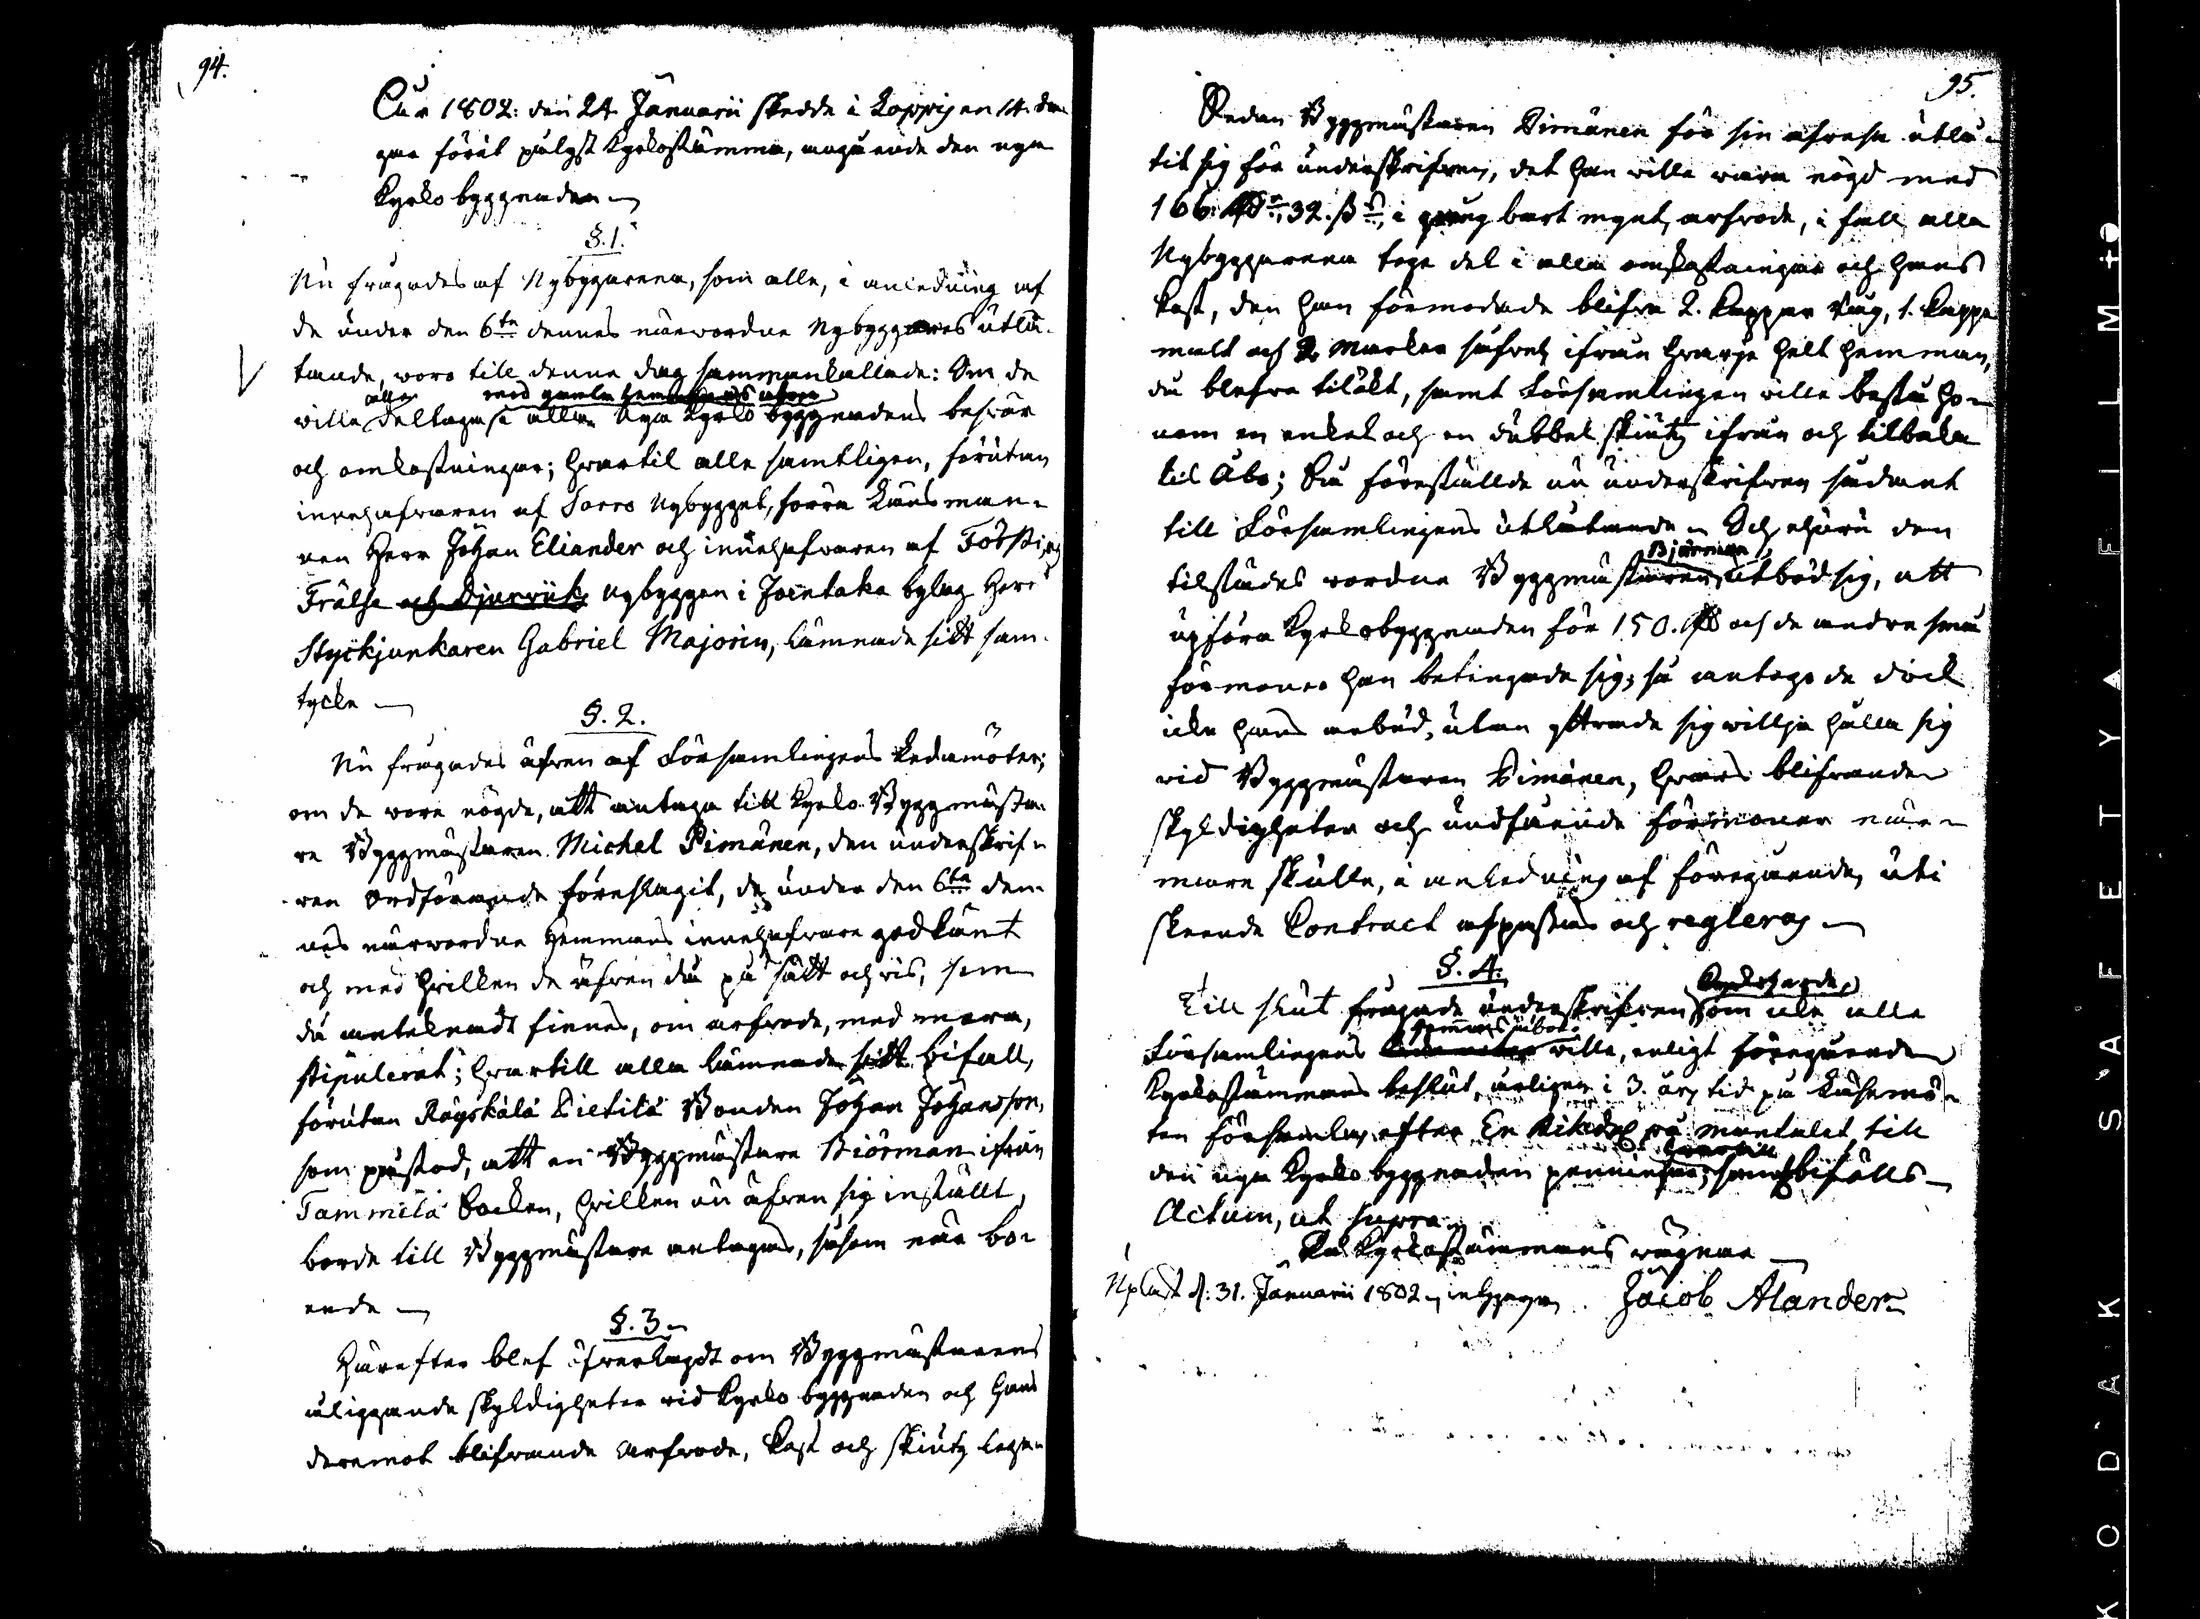 94.
År 1802: den 24. Januarii skedde i Loppis en 14. da-
gar förut pålyst Kyrkostämma, angående den nya
Kyrko byggnaden
§. 1.
Nu frågades af Nybyggarena, som alle, i anledning af
de under den 6te dennes närwordne Nybyggares utlå-
tande, woro till denna dag sammankallade: Om de
alla med gamla hemmans åboer
wille deltaga i allan Nya Kyrko byggnadens beswär
och omkostningar; hwartil alle samtligen, förutan
innehafwaren af Sorro Nybygget, förra Länsman-
nen Herr Johan Eliander och innehafwaren af
Frälse och nybyggen i Joentaka bylag Herr
Styckjunkaren Gabriel Majorin, lämnade sitt sam-
tycke
§. 2.
Nu frågades äfwen af Församlingens Ledamöter;
om de wore nögde, att antaga till Kyrko-Byggmästa-
re Byggmästaren Michel Pimänen, den underskrif-
wen Ordförande föreslagit, de under den 6te den-
nes närwordne Hemmans innehafware godkänt
och med hwilken de äfwen då på sätt och wis, som
då anteknadt finnes, om arfwode, med mera,
stipulerat; hwartill alla lämnade sitt bifall,
förutan Räyskälä Pietilä Bonden Johan Johansson,
som påstod, att en Byggmästare Biörman ifrån
Tammela Socken, hwilken nu äfwen sig inställt,
borde till Byggmästare antagas, såsom när bo-
ende
§. 3
Härefter blef öfwerlagdt om Byggmästarens
åliggande skyldigheter wid Kyrko byggnaden och hans
deremot blifwande arfwode, kost och skiuts lego-
95.
Sedan Byggmästaren Pimänen för sin afresa utlå-
tit sig för underskrifwen, det han wille wara nögd med
166. Rd. 32. ß i gångbart mynt, arfwode, i fall alla
Nybyggarena toge del i alla omkostningar och hans
kost, den han förmodade blifwa 2. Kappar Råg, 1. Kappe
malt och 2 Marker ifrån hwarje helt hemman,
då blefwe tilökt, samt Församlingen wille bestå ho-
nom en enkel och en dubbel skiuts ifrån och tilbaka
til Åbo; Så föreställde nu underskrifwen sådant
till Församlingens utlåtande. Och ehuru den
Björman
tilstädes wordne Byggmästaren utböd sig, att
upföra Kyrkobyggnaden för 150. Rd och de andra små
förmoner han betingade sig; så antogo de dock
icke hans anbud, utan yttrade sig willja hålla sig
wid Byggmästaren Pimänen, hwars blifwande
skyldigheter och undfående förmoner när-
mare skulle, i anledning af föregående, uti
skeende Contract afpassas och regleras
§. 4.
Till slut frågade underskrifwen om icke alla
Församlingens Hemmans åboer wille, enligt föregående
Kyrkostämmans beslut, årligen i 3. års tid på
ten församla efter En Riksdal. på mantalet till
hwartill
den nya Kyrko byggnaden penningar; bifölls
Actum, ut supra
På Kyrkostämmans wägnar
Upläst d. 31. Januarii 1802, Jacob Alander
KODAK SAFETY FILM